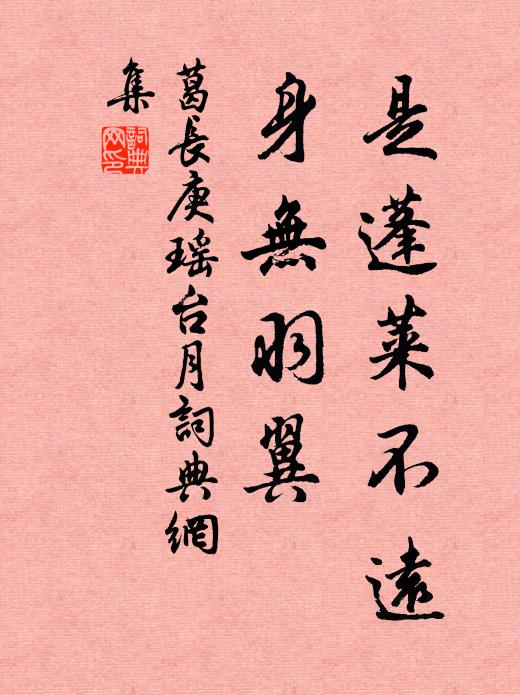 是蓬萊不遠
身無羽翼
葛長庚瑶台月詞典網
集
詞典
网印